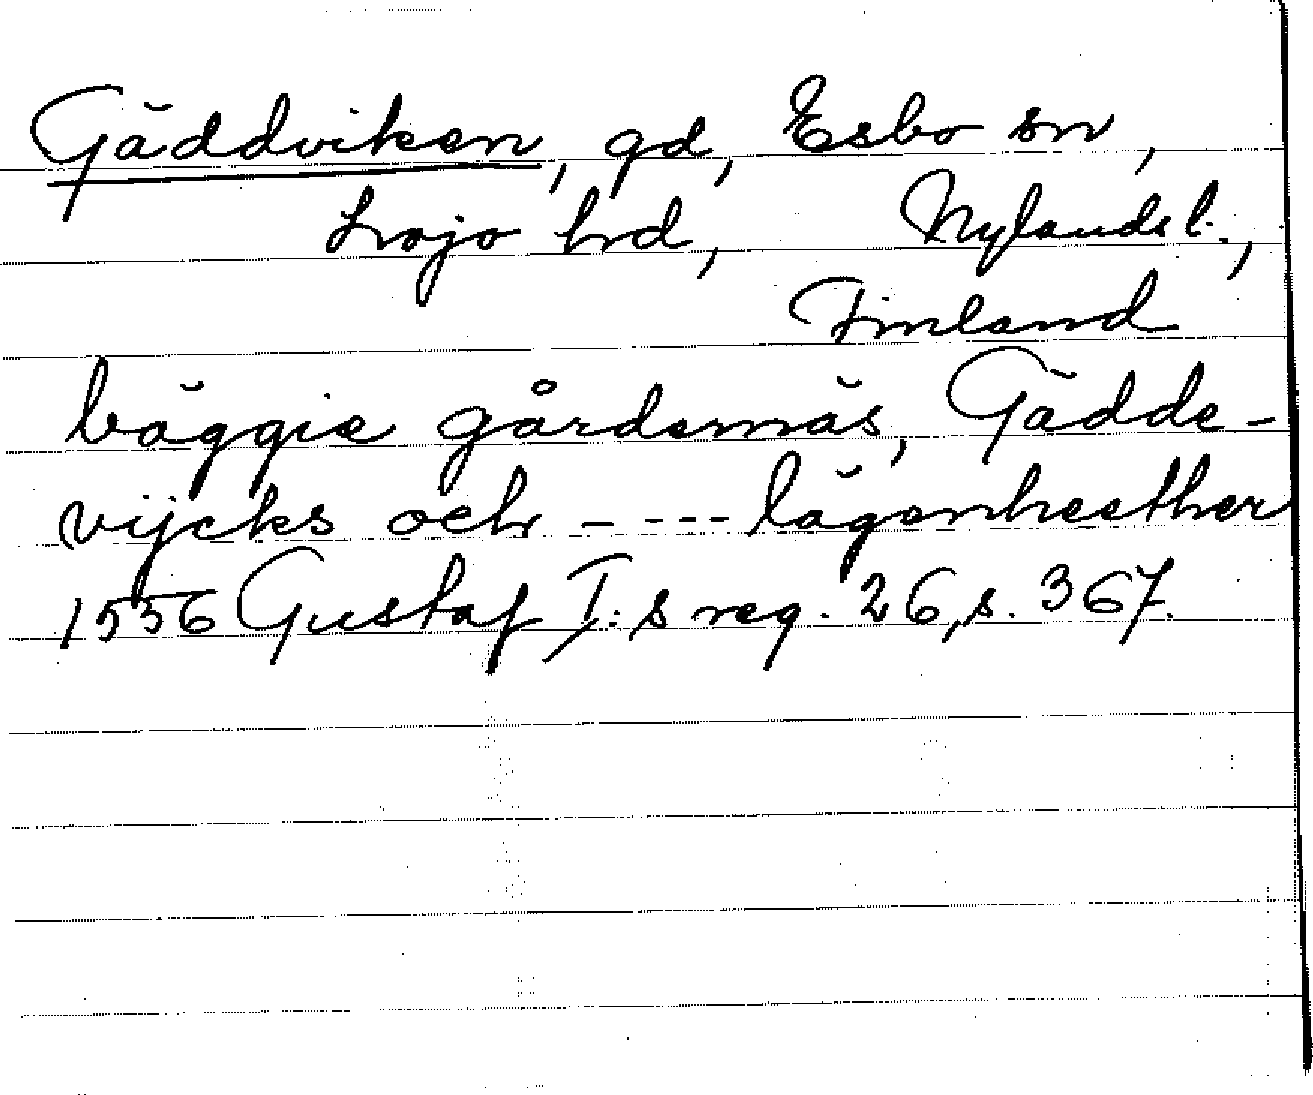 Gäddviken, gd, Esbo sn,
Lojo hd, Nylands l.,
Finland
bäggie gårdernäs, Gädde-
vijcks och - --- lägenheether
1556 Gustaf I:s reg. 26, s. 367.